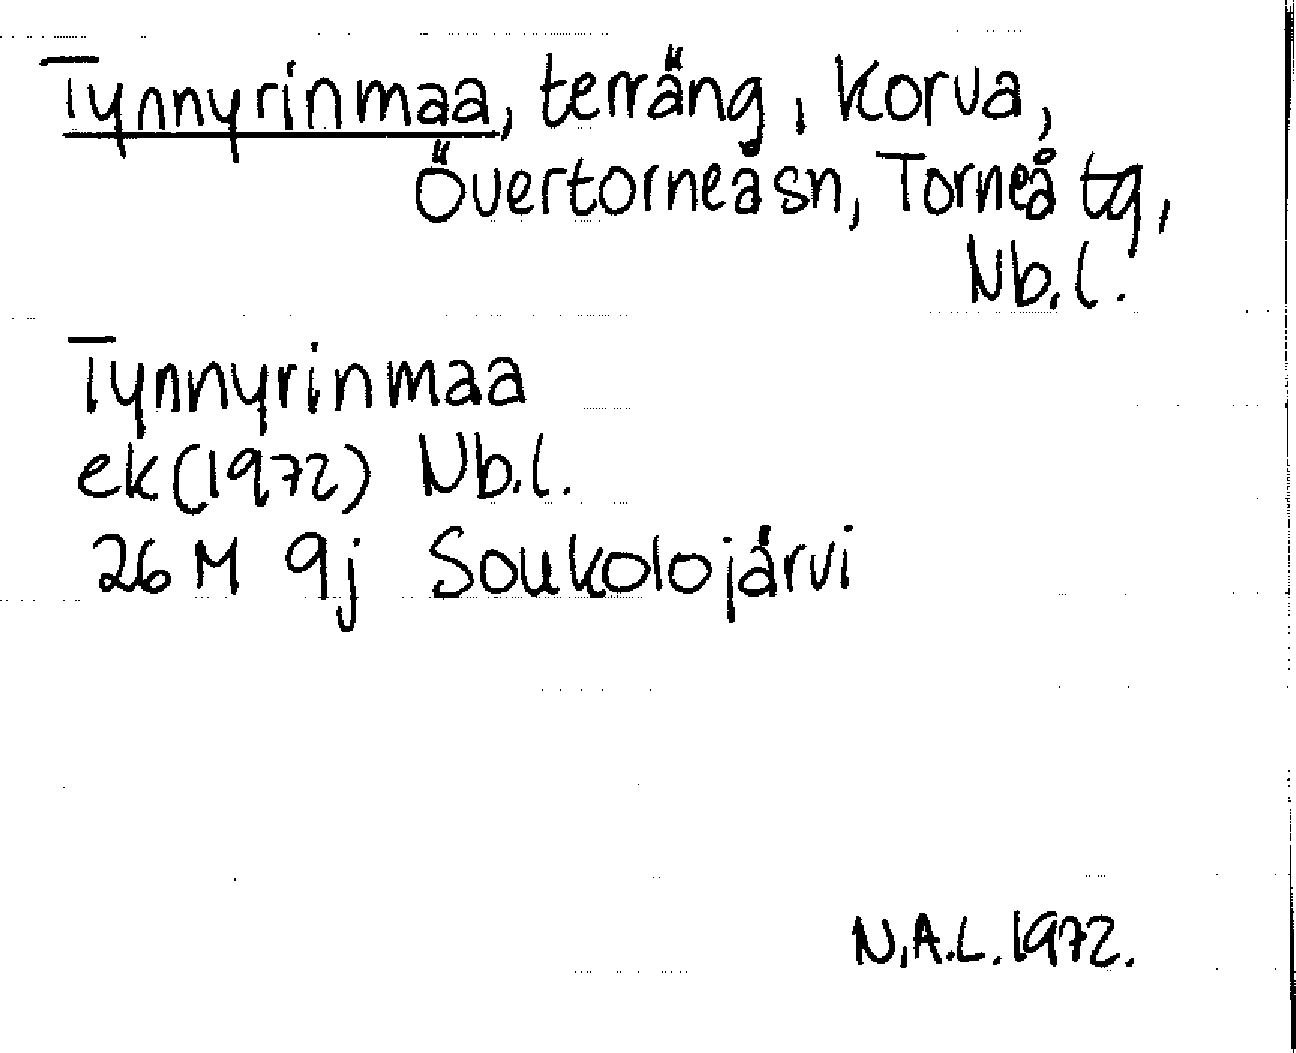 Tynnyrinmaa, terräng, Korva,
Övertorneå sn, Torneå tg,
Nb.l.
Tynnyrinmaa
ek (1972) Nb.l.
26 M 9j Soukolojärvi
N.A.L. 1972.